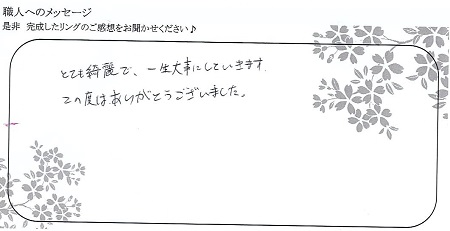 職人へのメッセージ
是非 完成したリングのご感想をお聞かせください♪
とても綺麗で、一生大事にしていきます。
この度はありがとうございました。